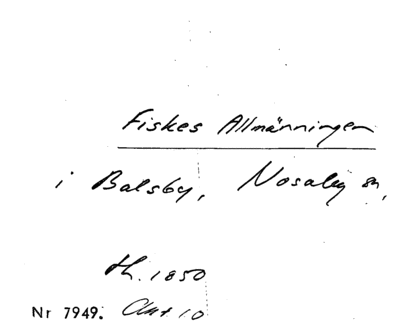 Fiskes Allmänningen
i Balsby, Nosaby sn,
th. 1850
Nr 7949. Akt 10